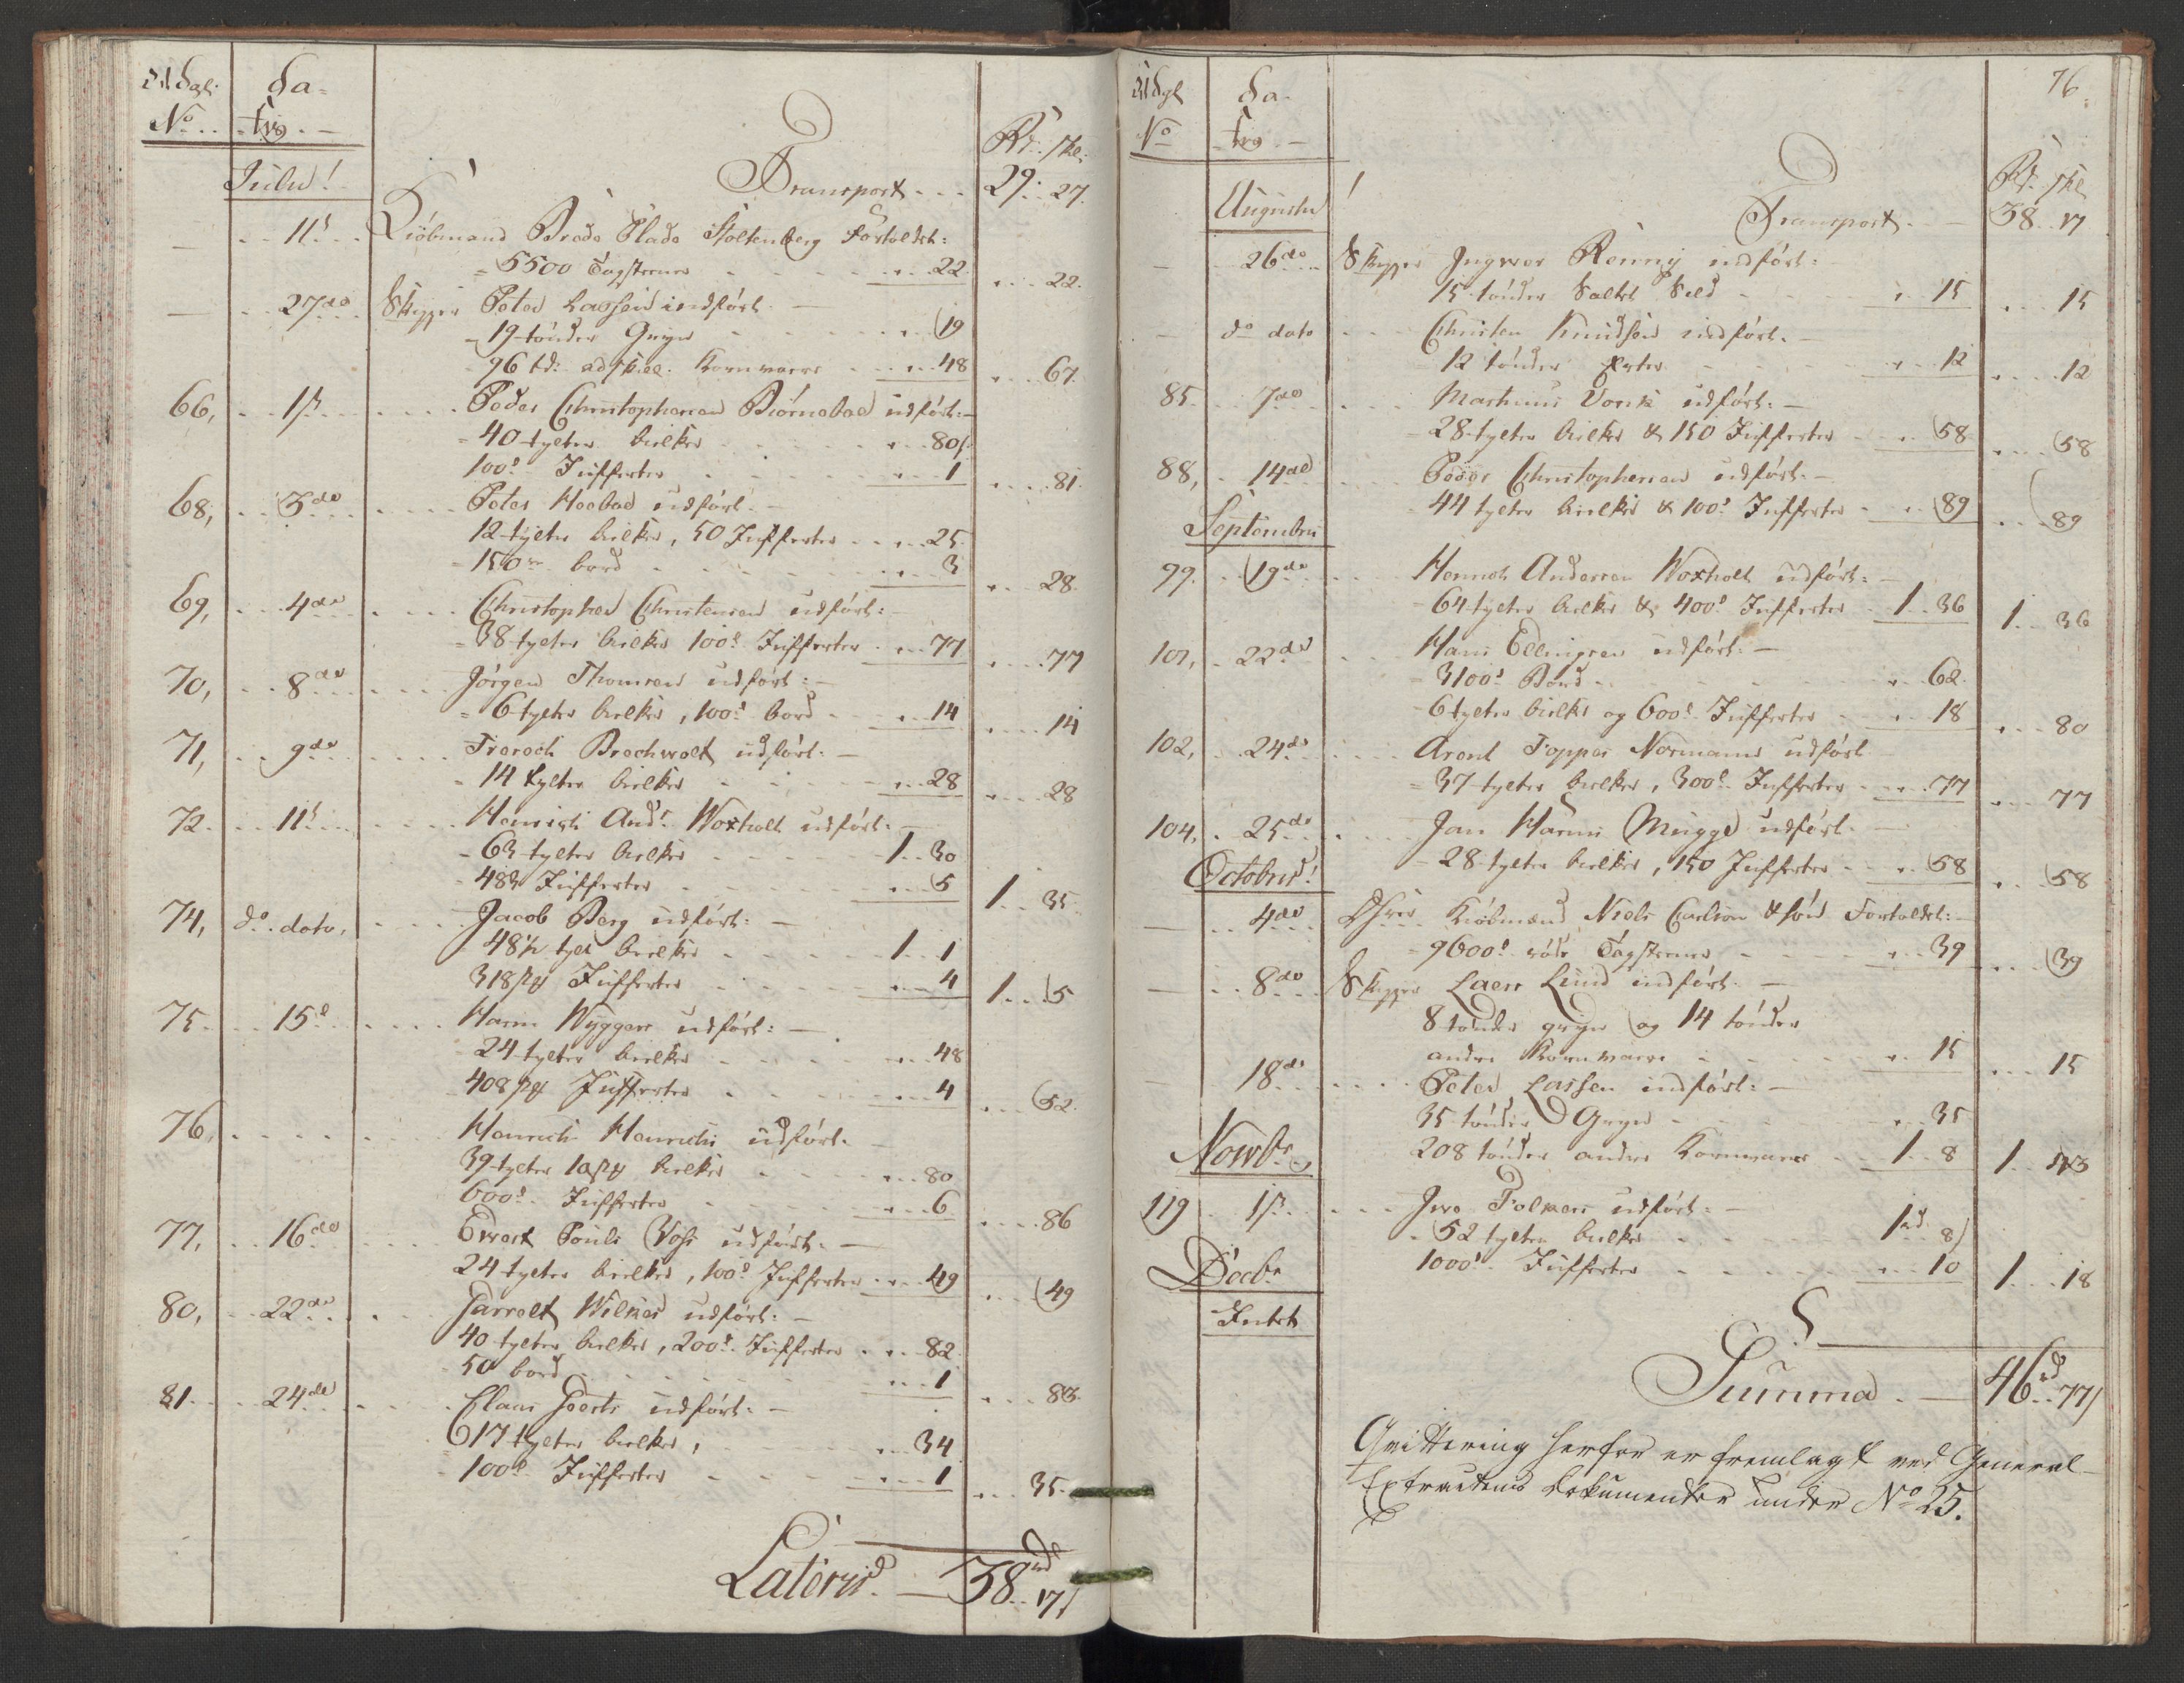 Udgl: Da-
No .. tro. -
Rd. skl:
Julii!
Transport - - - 29. 27.
- - 11t - - Kiöbmand Brede Plade Stoltenberg Fortoldet:
= 5500 Tagsteene - - - - 22 . . . 22.
27de Skipper Peter Lassen indfört. -
- 19 tönder Gryn - - - - 19
96 td: adskill. Kornvarer - - - 48 . . . 67.
66, - - 1st - - - Peder Christophersen Biörnebae udfört:-
= 40 tylter bielker - - - 80.
100d. Juffferter - - - 1 . . . 81.
68, - - 3de - - - Peter Hoebae udfört. -
12 tylter bielker, 50 Juffferter - - - 25.
= 150 bord - - - 3 . . . 28.
69, - - 4de - - - Christopher Christensen udfört:
= 38 tylter bielker 100d. Juffferter - - - 77 . . . 77
70, - - 8de - - - Jörgen Thomsen udfört: -
= 6 tylter bielker, 100d. bord - - - 14 . . . 14
71, - - 9de - - - Frerech Brechwolt udfört: -
= 14 tylter bielker - - - 28 . . . 28
72. - - 11t - - - Henrich And. Woxholt udfört. -
- 63 tylter bielker - - - 1. 30
- 483 Juffferter - - - 5 1 . . 35.
74, do. dato, - - - Jacob Berg udfört: -
48½ tylt bielker - - - 1. 1
318 st Juffferter - - - 4 1 . . 5
75. - - 15d - - - Harm Wyggers udfört: -
24 tylter bielker - - - 48
408 st Juffferter - - - 4 . . . 52.
76, - - - Henrich Henrichs udfört. -
39 tylter 10 st bielker - - - 80
600d. Juffferter - - - 6 . . . 86
77, - - 16de - - - Ewert Pouls Vohs udfört. -
24 tylter bielker, 100d. Juffferter - - - 49 . . . 49
80, - - 22de - - - Jarrelt Wilkes udfört: -
40 tylter bielker, 200d. Juffferter - - - 82.
50 bord - - - 1 . . . 83.
81. - - 24de - - - Claus Geerts udfört: -
17 tylter bielker, - - - 34
100d. Juffferter - - - 1 . . . 35.
Lateris. - 38rd .. 17s
76.
Udgl Da-
No tro -
Rd. skl
Augusti
Transport. - 38 .. 17
- 26de Skipper Ingwer Renny indfört: -
15 tönder Saltet Sild - - - 15 . . . 15
- do dato - - - Christen Knudsen indfört. -
12 tönder Erter - - - 12 . . . 12
85. 7de - - - Martinus Vonk udfört: -
- 28 tylter bielker & 150 Juffferter - - - 58 . . . 58
88, 14de - - - Peder Christophersen udfört. -
- 44 tylter bielker & 100d. Juffferter - - - 89 . . . 89
Septembri
99. - 19de - - - Henrich Andersen Woxholt udfört: -
- 64 tylter bielker & 400d. Juffferter - 1. 36 1 . . 36
101, - 22de - - - Hans Ellingsen udfört: -
= 3100d Bord - - - 62.
- 6 tylter bielker og 600d. Juffferter - - - 18 . . . 80
102, - 24de - - - Arent Fopper Normann udfört
= 37 tylter bielker, 300d. Juffferter - - - 77 . . . 77
104, - 25de - - - Jan Harms Mugge udfört. -
- 28 tylter bielker, 150 Juffferter - - - 58 . . . 58
Octobris!
- 4de Dhrrer Kiöbmænd Niels Carlsen & sön Fortoldet: -
= 9600d. röde Tagsteene - - - 39 . . . 39
- 8de Skipper Laers Lund indfört. -
8 tönder gryn og 14 tönder
andre Kornvarer - - - 15 . . . 15
- 18de - - - Peter Lassen indfört: -
35 tönder Gryn - - - 35
208 tönder andre Kornvarer - - 1. 8 1 . . 43
Novbr.
119 - 1st - - - Iwe Folkers udfört: -
- 52 tylter bielker - - - 1rd. 8
1000d. Juffferter - - - 10 1 . . 18
Decbr
Intet
Summa. - 46rd .. 77s
Qvittering herfor er fremlagt ved General-
Extractens Dokumenter under No 25.